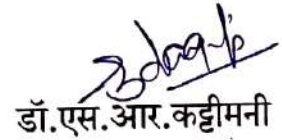 डॉ.एस.आर.कट्टीमनी